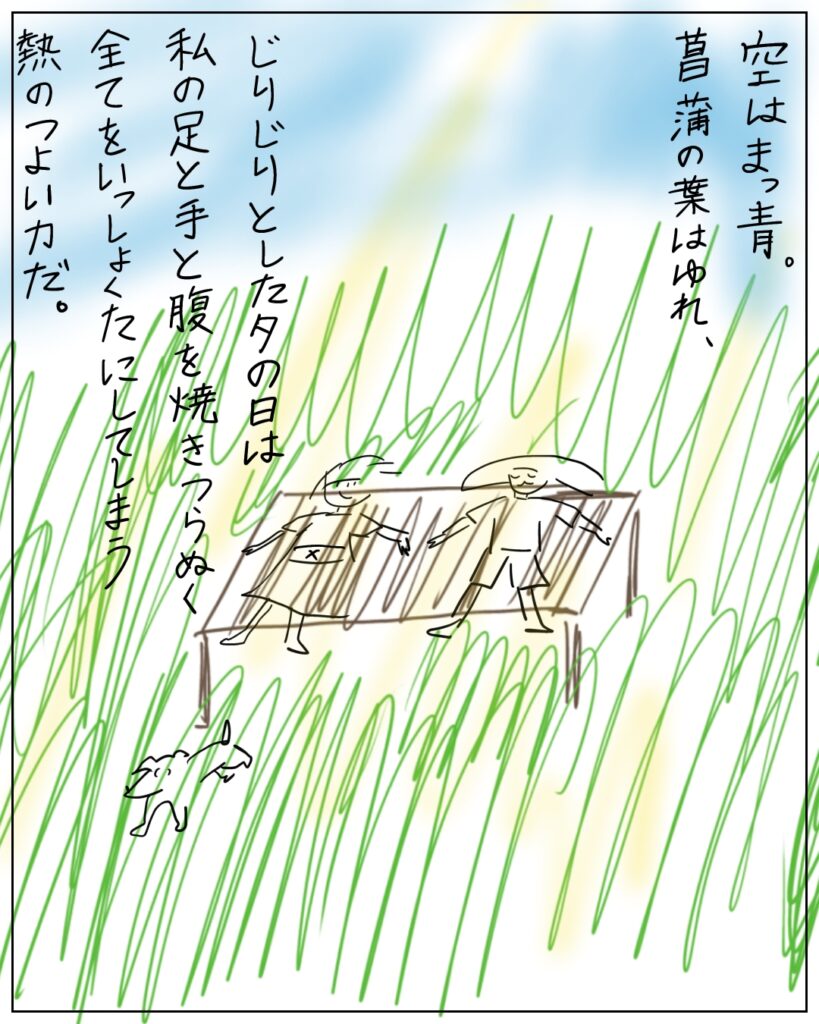 空はまっ青。
菖蒲の葉はゆれ、
じりじりとした夕の日は
私の足と手と腹を焼きつらぬく
全てをいっしょくたにしてしまう
熱のつよい力だ。